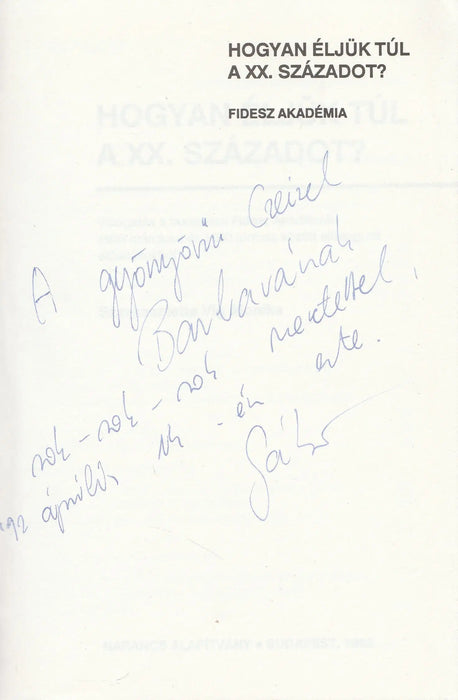 HOGYAN ÉLJÜK TÚL
A XX. SZÁZADOT?
FIDESZ AKADÉMIA
HOGYAN ÉLJÜK TÚL
A XX. SZÁZADOT?
A gyönyörű Czeizel
Barbarának
sok-sok-sok szeretettel,
'92 április -én este.
Gábor
NARANCS ALAPÍTVÁNY • BUDAPEST, 1992